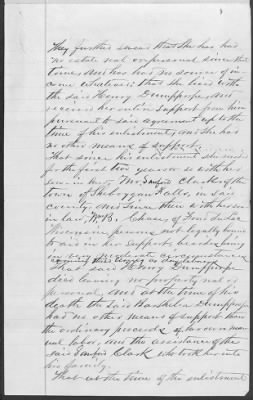 They further swear that she has had
no estate real or personal since that
time, and has had no source of in-
come whatever; that she lived with
the said Henry Dumphrope, and
received her entire support from him
pursuant to said agreement up to the
time of his enlistment, and she has
no other means of support.
That since his enlistment she resided
for the first two years or so with her
son in law, Mr Sanford Clark, of the
town of Sheboygan Falls, in said
county, and since then with her son
in law, W. B. Chase, of Fond du Lac
Wisconsin, persons not legally bound
to aid in her support, besides being
in circumstances
That said Henry Dumphrope
died leaving no property real or
personal, and at the time of his
death the said Dumphrope
had no other means of support than
the ordinary proceeds of her own man-
ual labor, and the assistance of the
said Sanford Clark who took her into
his family.
That at the time of the enlistment